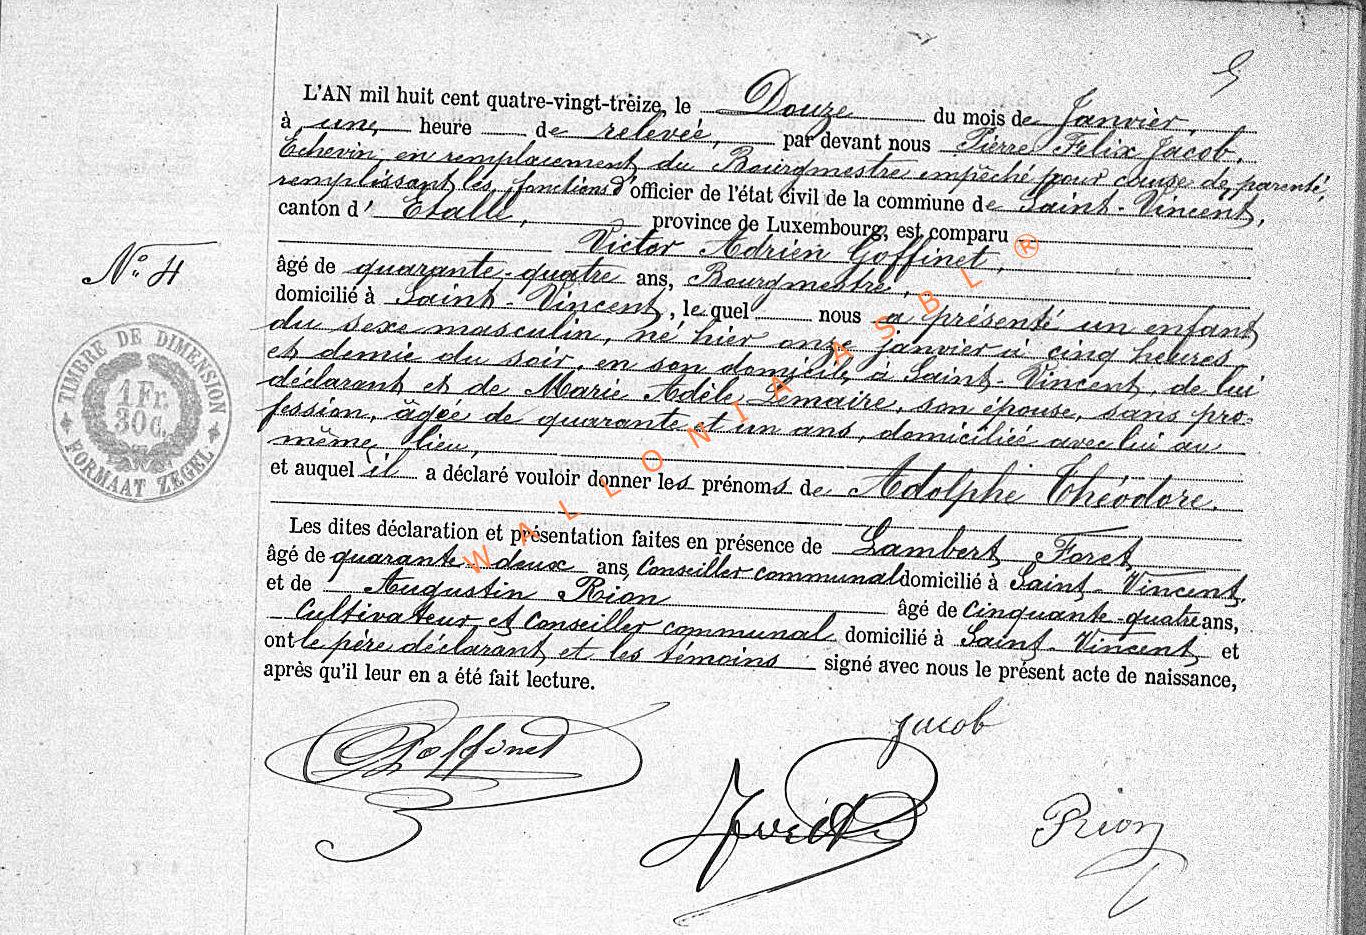 9
L'AN mil huit cent quatre-vingt-treize, le Douze du mois de Janvier,
à une heure de relevée, par devant nous Pierre Felix Jacob,
Echevin, en remplacement du Bourgmestre empêché pour cause de parenté,
remplissant les fonctions d'officier de l'état civil de la commune de Saint-Vincent,
canton d'Etalle, province de Luxembourg, est comparu
Victor Adrien Goffinet,
N° 4
âgé de quarante-quatre ans, Bourgmestre,
domicilié à Saint-Vincent, lequel nous a présenté un enfant
du sexe masculin, né hier onze janvier à cinq heures
et demie du soir, en son domicile, à Saint-Vincent, de lui
déclarant et de Marie Adèle Lemaire, son épouse, sans pro-
fession, âgée de quarante et un ans, domiciliée avec lui au
même lieu,
et auquel il a déclaré vouloir donner les prénoms de Adolphe Théodore.
Les dites déclaration et présentation faites en présence de Lambert Foret,
âgé de quarante-deux ans, Conseiller communal domicilié à Saint-Vincent,
et de Augustin Rion âgé de cinquante-quatre ans,
Cultivateur et Conseiller communal domicilié à Saint-Vincent et
ont le père déclarant et les témoins signé avec nous le présent acte de naissance,
après qu'il leur en a été fait lecture.
TIMBRE DE DIMENSION
1 Fr.
30 C.
FORMAAT ZEGEL
WALLONIA ASBL ®
Goffinet
Jacob
Foret
Rion